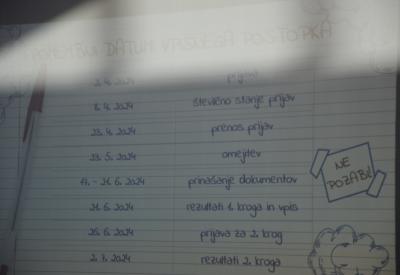 POMEMBNI DATUMI VPISNEGA POSTOPKA
2. 4. 2024 prijava
8. 4. 2024 številčno stanje prijav
23. 4. 2024 prenos prijav
23. 5. 2024 omejitev
17. - 21. 6. 2024 prinašanje dokumentov
21. 6. 2024 rezultati 1. kroga in vpis
26. 6. 2024 prijava za 2. krog
2. 7. 2024 rezultati 2. kroga
NE
POZABI!